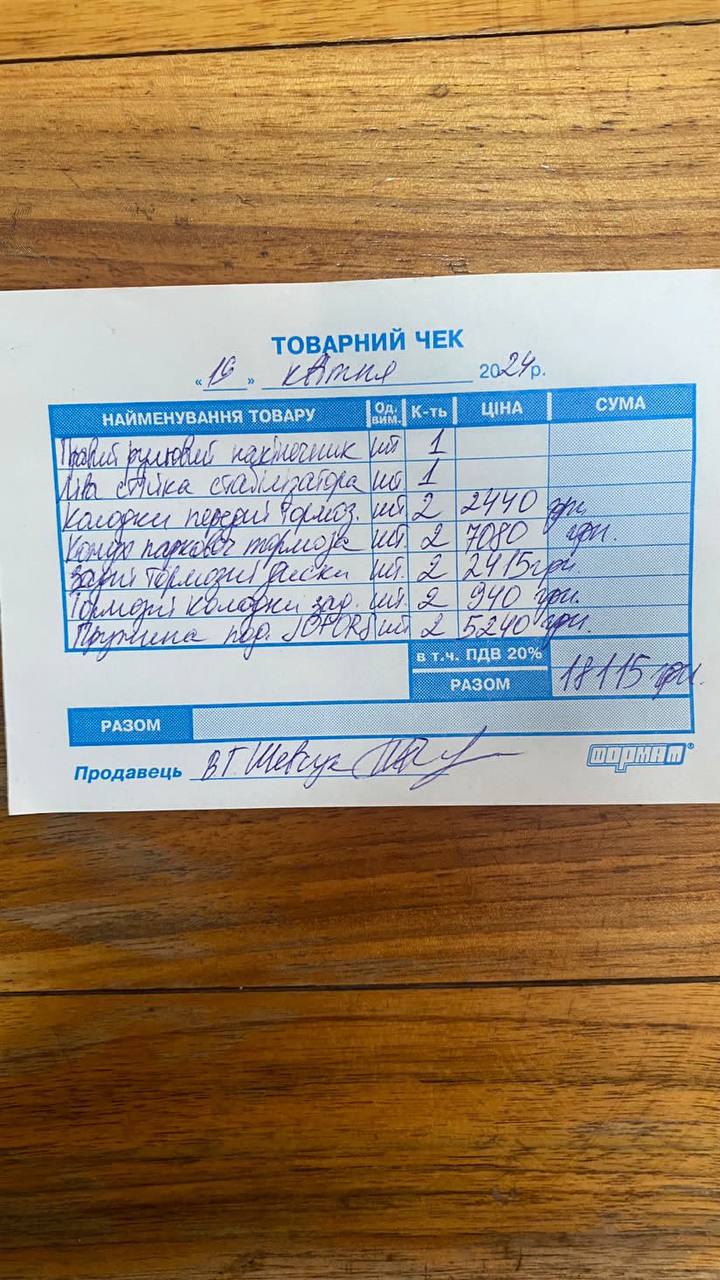 ТОВАРНИЙ ЧЕК
«19» квітня 2024р.
НАЙМЕНУВАННЯ ТОВАРУ Од. вим. К-ть ЦІНА СУМА
Правий рульовий накінечник шт 1
Ліва стійка стабілізатора шт 1
Колодки передні тормоз. шт 2 2440 грн.
паркової тормоза шт. 2 7080 грн.
Задні тормозні диски шт. 2 2415 грн.
Тормозні колодки зад. шт. 2 940 грн.
Пружина под. шт 2 5240 грн.
в т.ч. ПДВ 20%
РАЗОМ 18115 грн.
РАЗОМ
Продавець ВГ Шевчук
ФОРМАТ®